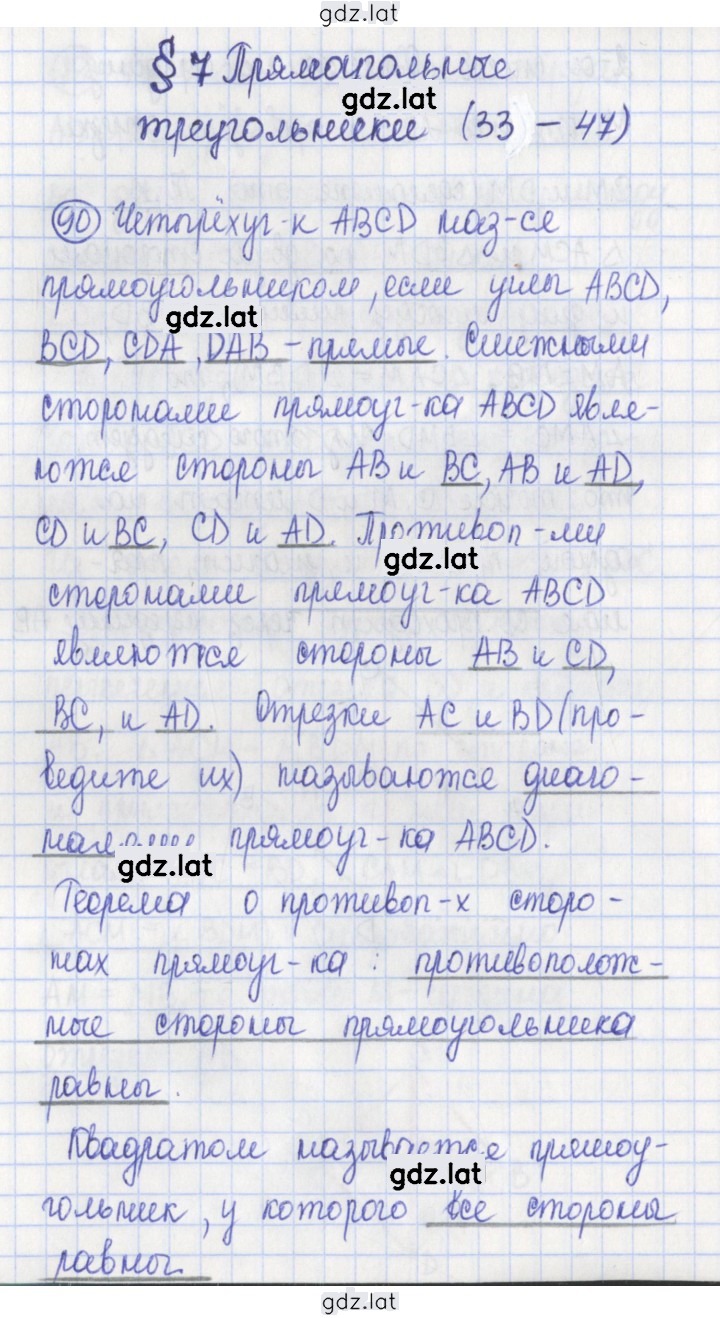 gdz.lat
§ 7 Прямоугольные
gdz.lat
треугольники (33 – 47)
90 Четырёхуг-к ABCD наз-ся
прямоугольником, если углы ABCD,
gdz.lat
BCD, CDA, DAB – прямые. Смежными
сторонами прямоуг-ка ABCD явля-
ются стороны AB и BC, AB и AD,
CD и BC, CD и AD. Противоп-ми
gdz.lat
сторонами прямоуг-ка ABCD
являются стороны AB и CD,
BC, и AD. Отрезки AC и BD (про-
ведите их) называются диаго-
прямоуг-ка ABCD.
gdz.lat
Теорема о противоп-х сторо-
нах прямоуг-ка: противополож-
ные стороны прямоугольника
равны.
Квадратом называется прямоу-
gdz.lat
гольник, у которого все стороны
равны.
gdz.lat